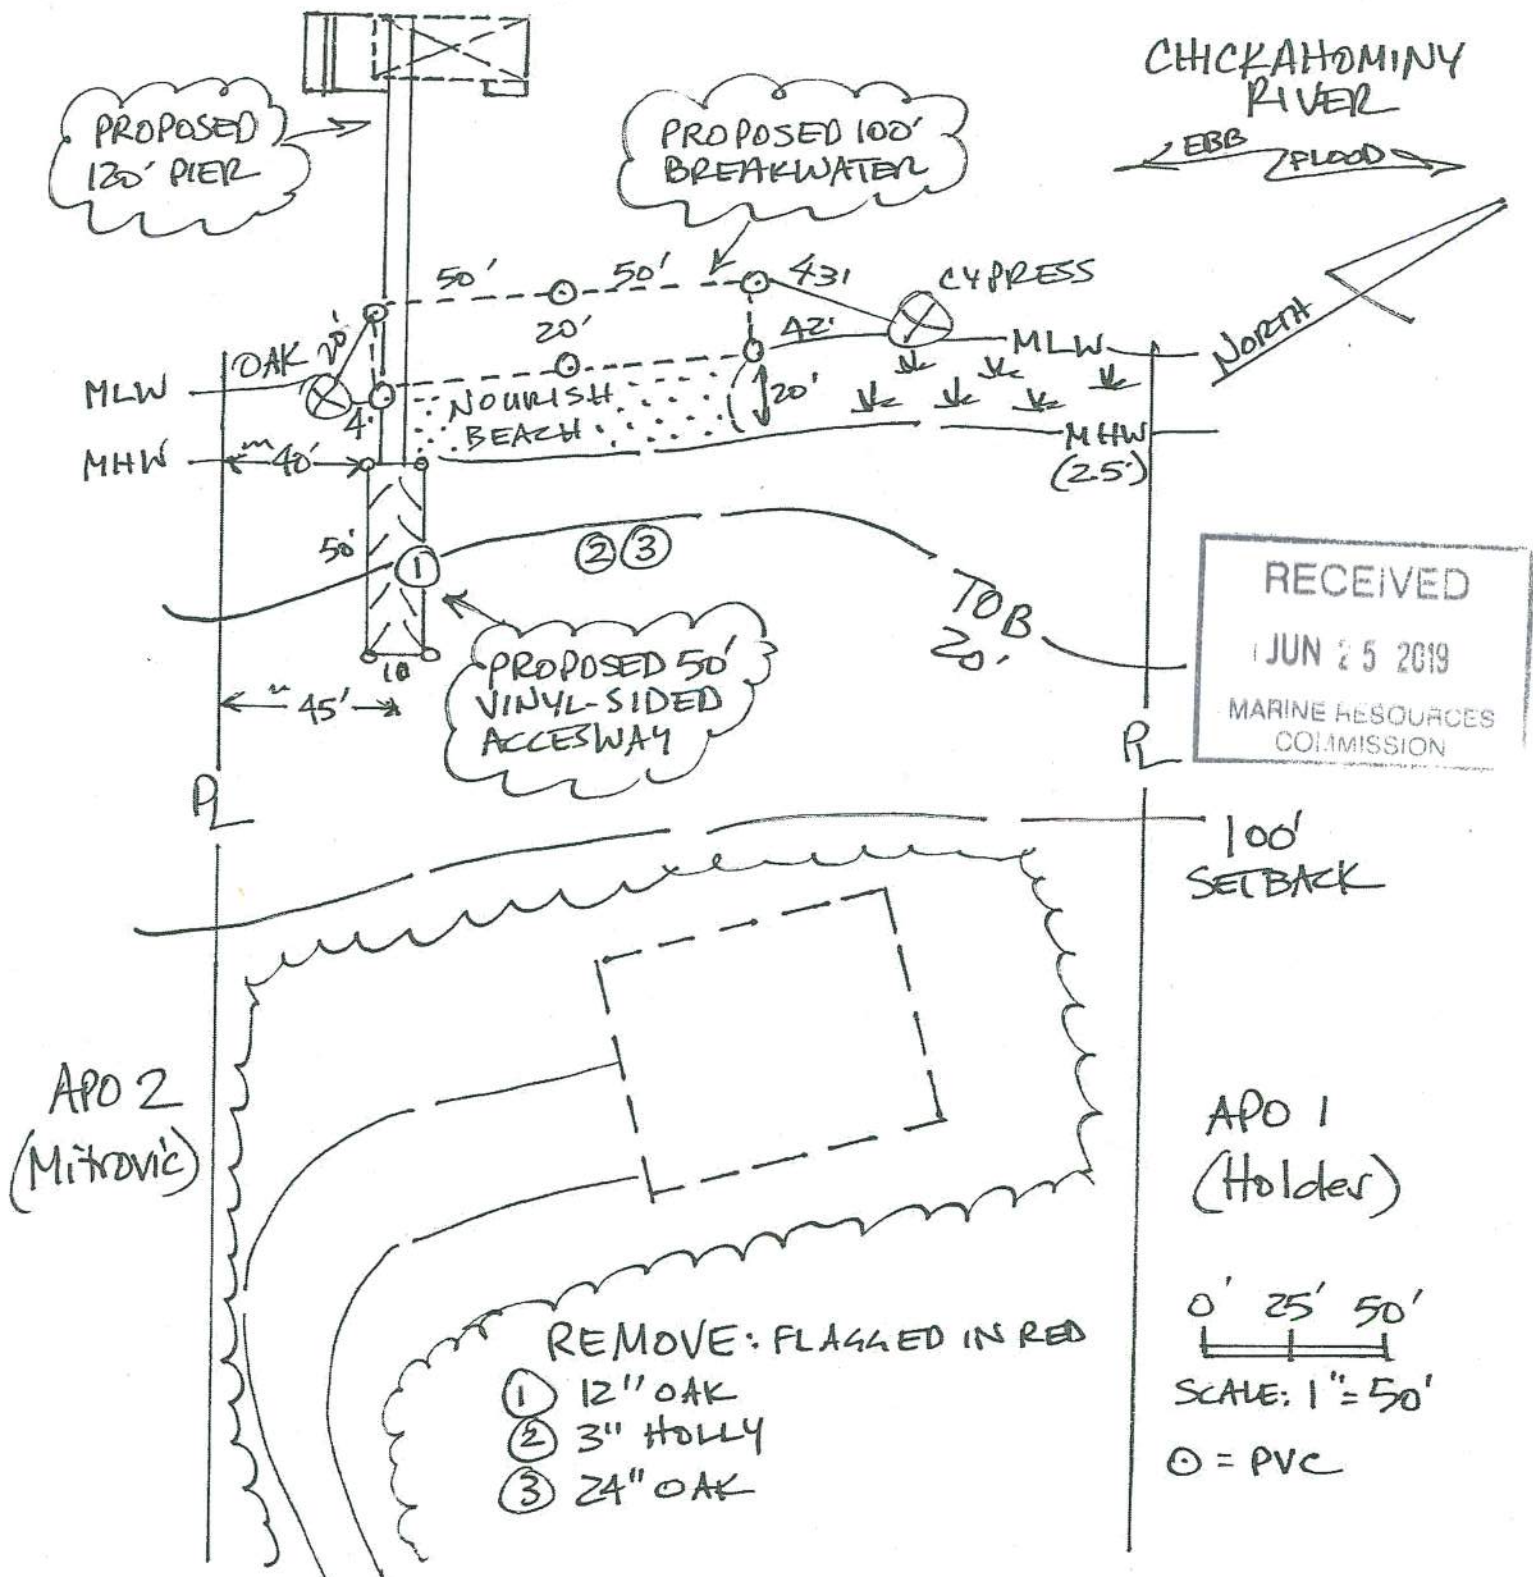 CHICKAHOMINY
RIVER
EBB
FLOOD
PROPOSED
120' PIER
PROPOSED 100'
BREAKWATER
50'
50'
43'
CYPRESS
NORTH
OAK
20'
20'
42'
MLW
MLW
4'
NOURISH
BEACH
20'
MHW
40'
MHW
(25')
50'
1
2
3
TOB
20'
10
45'
PROPOSED 50'
VINYL-SIDED
ACCESWAY
RECEIVED
JUN 25 2019
MARINE RESOURCES
COMMISSION
PL
PL
100'
SETBACK
APO 2
(Mitrovic)
APO 1
(Holder)
REMOVE: FLAGGED IN RED
1 12" OAK
2 3" HOLLY
3 24" OAK
0' 25' 50'
SCALE: 1" = 50'
⊙ = PVC